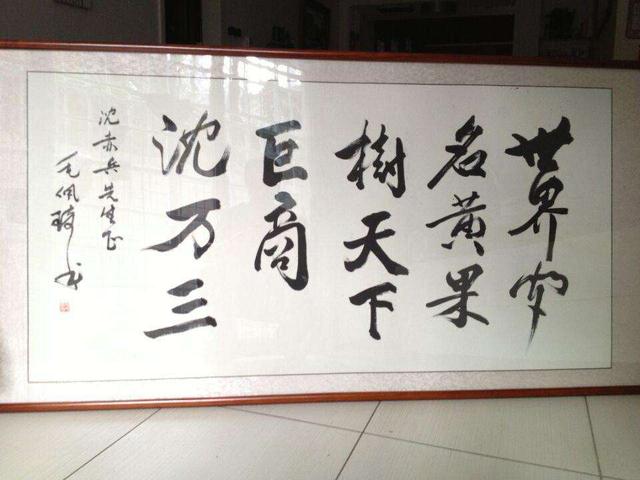 世界闻
名黄果
樹天下
巨商
沈万三
沈赤兵先生正
毛佩琦书